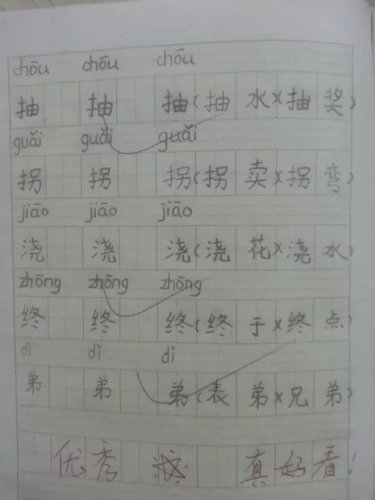 chōu chōu chōu
抽 抽 抽(抽水)(抽奖)
guǎi guǎi guǎi
拐 拐 拐(拐卖)(拐弯)
jiāo jiāo jiāo
浇 浇 浇(浇花)(浇水)
zhōng zhōng zhōng
终 终 终(终于)(终点)
dì dì dì
弟 弟 弟(表弟)(兄弟)
优秀 真好看!